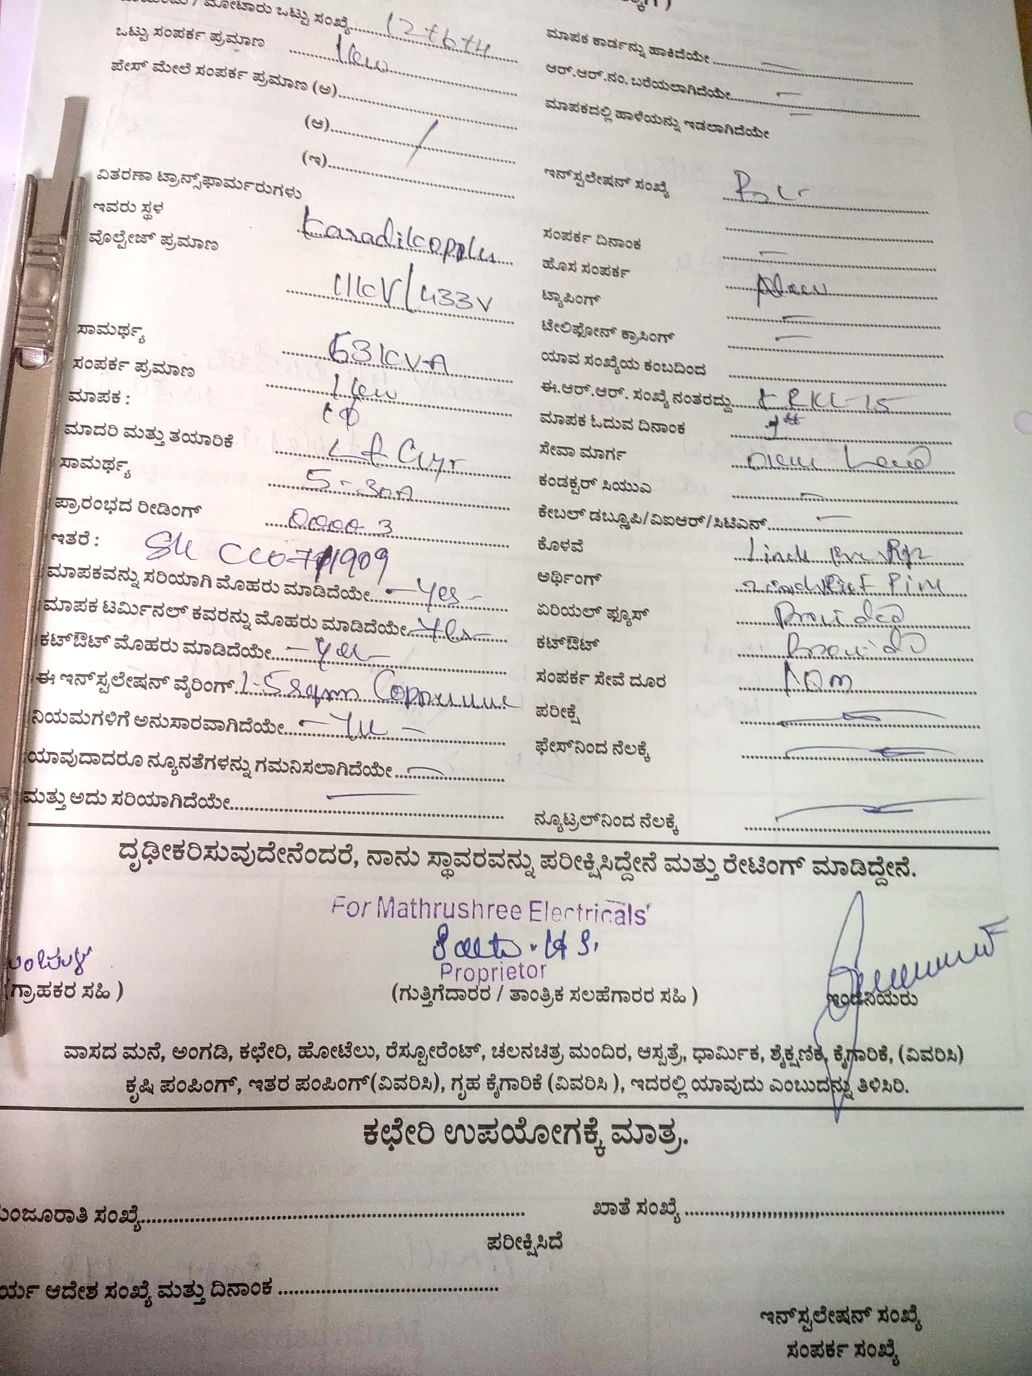 ಮೋಟಾರು ಒಟ್ಟು ಸಂಖ್ಯೆ............ 12+6+4
ಒಟ್ಟು ಸಂಪರ್ಕ ಪ್ರಮಾಣ ............ 1kw
ಪೇಸ್ ಮೇಲೆ ಸಂಪರ್ಕ ಪ್ರಮಾಣ (ಅ)............
(ಆ)............
(ಇ)............
ವಿತರಣಾ ಟ್ರಾನ್ಸ್‌ಫಾರ್ಮರುಗಳು
ಇವರು ಸ್ಥಳ Karadikoppalu
ವೊಲ್ಟೇಜ್ ಪ್ರಮಾಣ 11KV/433V
ಸಾಮರ್ಥ್ಯ 63KVA
ಸಂಪರ್ಕ ಪ್ರಮಾಣ 1kw
ಮಾಪಕ : 1Φ
ಮಾದರಿ ಮತ್ತು ತಯಾರಿಕೆ
ಸಾಮರ್ಥ್ಯ 5-30A
ಪ್ರಾರಂಭದ ರೀಡಿಂಗ್ 0000-3
ಇತರೆ :
ಮಾಪಕವನ್ನು ಸರಿಯಾಗಿ ಮೊಹರು ಮಾಡಿದೆಯೇ.. -Yes-
ಮಾಪಕ ಟರ್ಮಿನಲ್ ಕವರನ್ನು ಮೊಹರು ಮಾಡಿದೆಯೇ.. -Yes-
ಕಟ್‌ಔಟ್ ಮೊಹರು ಮಾಡಿದೆಯೇ.. -Yes-
ಈ ಇನ್‌ಸ್ಪಲೇಷನ್ ವೈರಿಂಗ್
ನಿಯಮಗಳಿಗೆ ಅನುಸಾರವಾಗಿದೆಯೇ..
ಯಾವುದಾದರೂ ನ್ಯೂನತೆಗಳನ್ನು ಗಮನಿಸಲಾಗಿದೆಯೇ..
ಮತ್ತು ಅದು ಸರಿಯಾಗಿದೆಯೇ............
ಮಾಪಕ ಕಾರ್ಡನ್ನು ಹಾಕಿದೆಯೇ............
ಆರ್.ಆರ್.ನಂ. ಬರೆಯಲಾಗಿದೆಯೇ............
ಮಾಪಕದಲ್ಲಿ ಹಾಳೆಯನ್ನು ಇಡಲಾಗಿದೆಯೇ
ಇನ್‌ಸ್ಪಲೇಷನ್ ಸಂಖ್ಯೆ
ಸಂಪರ್ಕ ದಿನಾಂಕ
ಹೊಸ ಸಂಪರ್ಕ
ಟ್ಯಾಪಿಂಗ್
ಟೇಲಿಫೋನ್ ಕ್ರಾಸಿಂಗ್
ಯಾವ ಸಂಖ್ಯೆಯ ಕಂಬದಿಂದ
ಈ.ಆರ್.ಆರ್. ಸಂಖ್ಯೆ ನಂತರದ್ದು.. KRKL-15
ಮಾಪಕ ಓದುವ ದಿನಾಂಕ
ಸೇವಾ ಮಾರ್ಗ
ಕಂಡಕ್ಟರ್ ಸಿಯುಎ
ಕೇಬಲ್ ಡಬ್ಲ್ಯೂಪಿ/ವಿಐಆರ್/ಸಿಟಿಎನ್............
ಕೊಳವೆ
ಅರ್ಥಿಂಗ್
ಏರಿಯಲ್ ಫ್ಯೂಸ್ Provided
ಕಟ್‌ಔಟ್ Provided
ಸಂಪರ್ಕ ಸೇವೆ ದೂರ 10m
ಪರೀಕ್ಷೆ
ಫೇಸ್‌ನಿಂದ ನೆಲಕ್ಕೆ
ನ್ಯೂಟ್ರಲ್‌ನಿಂದ ನೆಲಕ್ಕೆ
ದೃಢೀಕರಿಸುವುದೇನೆಂದರೆ, ನಾನು ಸ್ಥಾವರವನ್ನು ಪರೀಕ್ಷಿಸಿದ್ದೇನೆ ಮತ್ತು ರೇಟಿಂಗ್ ಮಾಡಿದ್ದೇನೆ.
For Mathrushree Electricals
Proprietor
(ಗ್ರಾಹಕರ ಸಹಿ ) (ಗುತ್ತಿಗೆದಾರರ / ತಾಂತ್ರಿಕ ಸಲಹೆಗಾರರ ಸಹಿ ) ಇಂಜಿನಿಯರು
ವಾಸದ ಮನೆ, ಅಂಗಡಿ, ಕಛೇರಿ, ಹೋಟೆಲು, ರೆಸ್ಟೋರೆಂಟ್, ಚಲನಚಿತ್ರ ಮಂದಿರ, ಆಸ್ಪತ್ರೆ, ಧಾರ್ಮಿಕ, ಶೈಕ್ಷಣಿಕ, ಕೈಗಾರಿಕೆ, (ವಿವರಿಸಿ)
ಕೃಷಿ ಪಂಪಿಂಗ್, ಇತರ ಪಂಪಿಂಗ್(ವಿವರಿಸಿ), ಗೃಹ ಕೈಗಾರಿಕೆ (ವಿವರಿಸಿ ), ಇದರಲ್ಲಿ ಯಾವುದು ಎಂಬುದನ್ನು ತಿಳಿಸಿರಿ.
ಕಛೇರಿ ಉಪಯೋಗಕ್ಕೆ ಮಾತ್ರ.
ಮಂಜೂರಾತಿ ಸಂಖ್ಯೆ............ ಖಾತೆ ಸಂಖ್ಯೆ ............
ಪರೀಕ್ಷಿಸಿದೆ
ಆದೇಶ ಸಂಖ್ಯೆ ಮತ್ತು ದಿನಾಂಕ ............
ಇನ್‌ಸ್ಪಲೇಷನ್ ಸಂಖ್ಯೆ
ಸಂಪರ್ಕ ಸಂಖ್ಯೆ